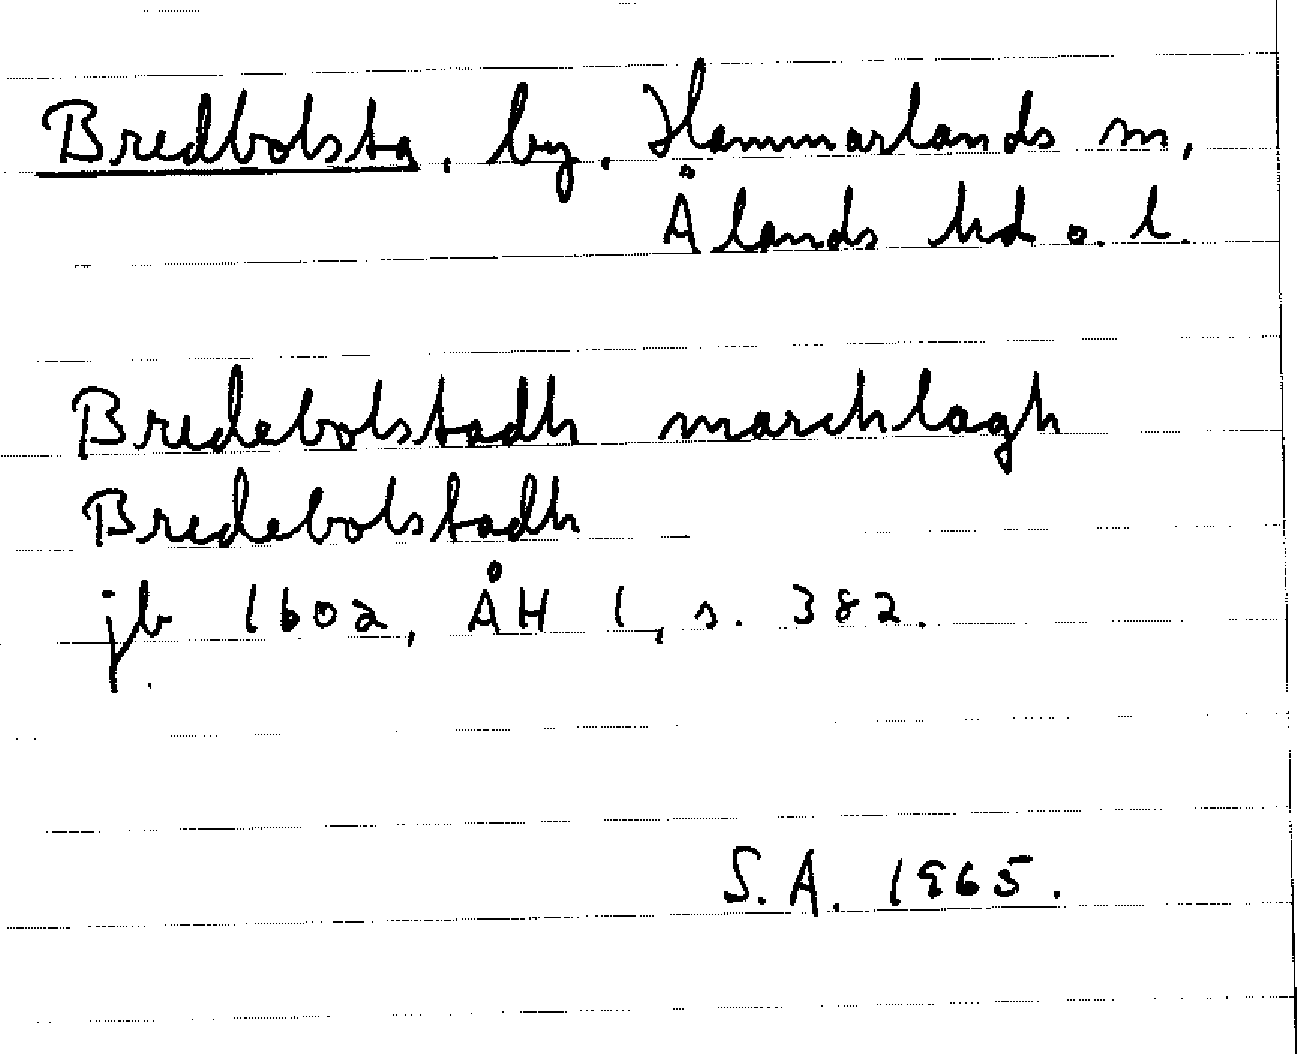 Bredbolsta, by, Hammarlands sn,
Ålands hd o. l.
Bredebolstadh marchlagh
Bredebolstadh
jb 1602, ÅH 1, s. 382.
S.A. 1965.